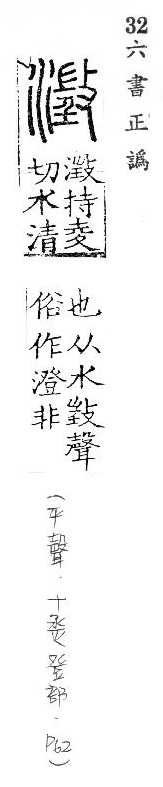 32六書正譌
澂
澂持夌
切水清
也从水聲
俗作澄非
(平聲．十烝登部．P62)